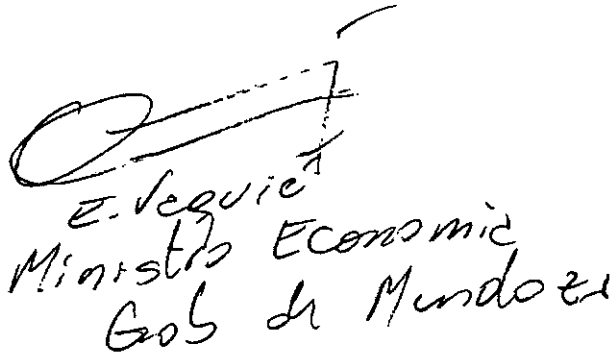 E. Vaquié
Ministro Economia
Gob de Mendoza